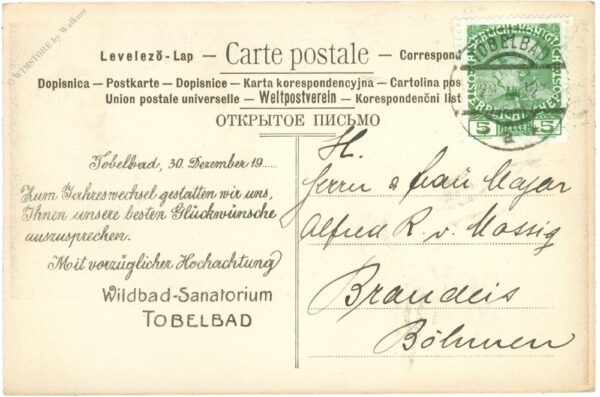 © WIMSTORE by Walkner
Levelező-Lap — Carte postale — Correspond
Dopisnica — Postkarte — Dopisnice — Karta korespondencyjna — Cartolina pos
Union postale universelle — Weltpostverein — Korespondenční list
ОТКРЫТОЕ ПИСЬМО
TOBELBAD
5 HELLER 5
a
Tobelbad, 30. Dezember 19......
Zum Jahreswechsel gestatten wir uns,
Ihnen unsere besten Glückwünsche
auszusprechen.
Mit vorzüglicher Hochachtung
Wildbad-Sanatorium
TOBELBAD
H.
Herrn & Frau Major
Alfred R. v. Mossig
Brandeis
Böhmen